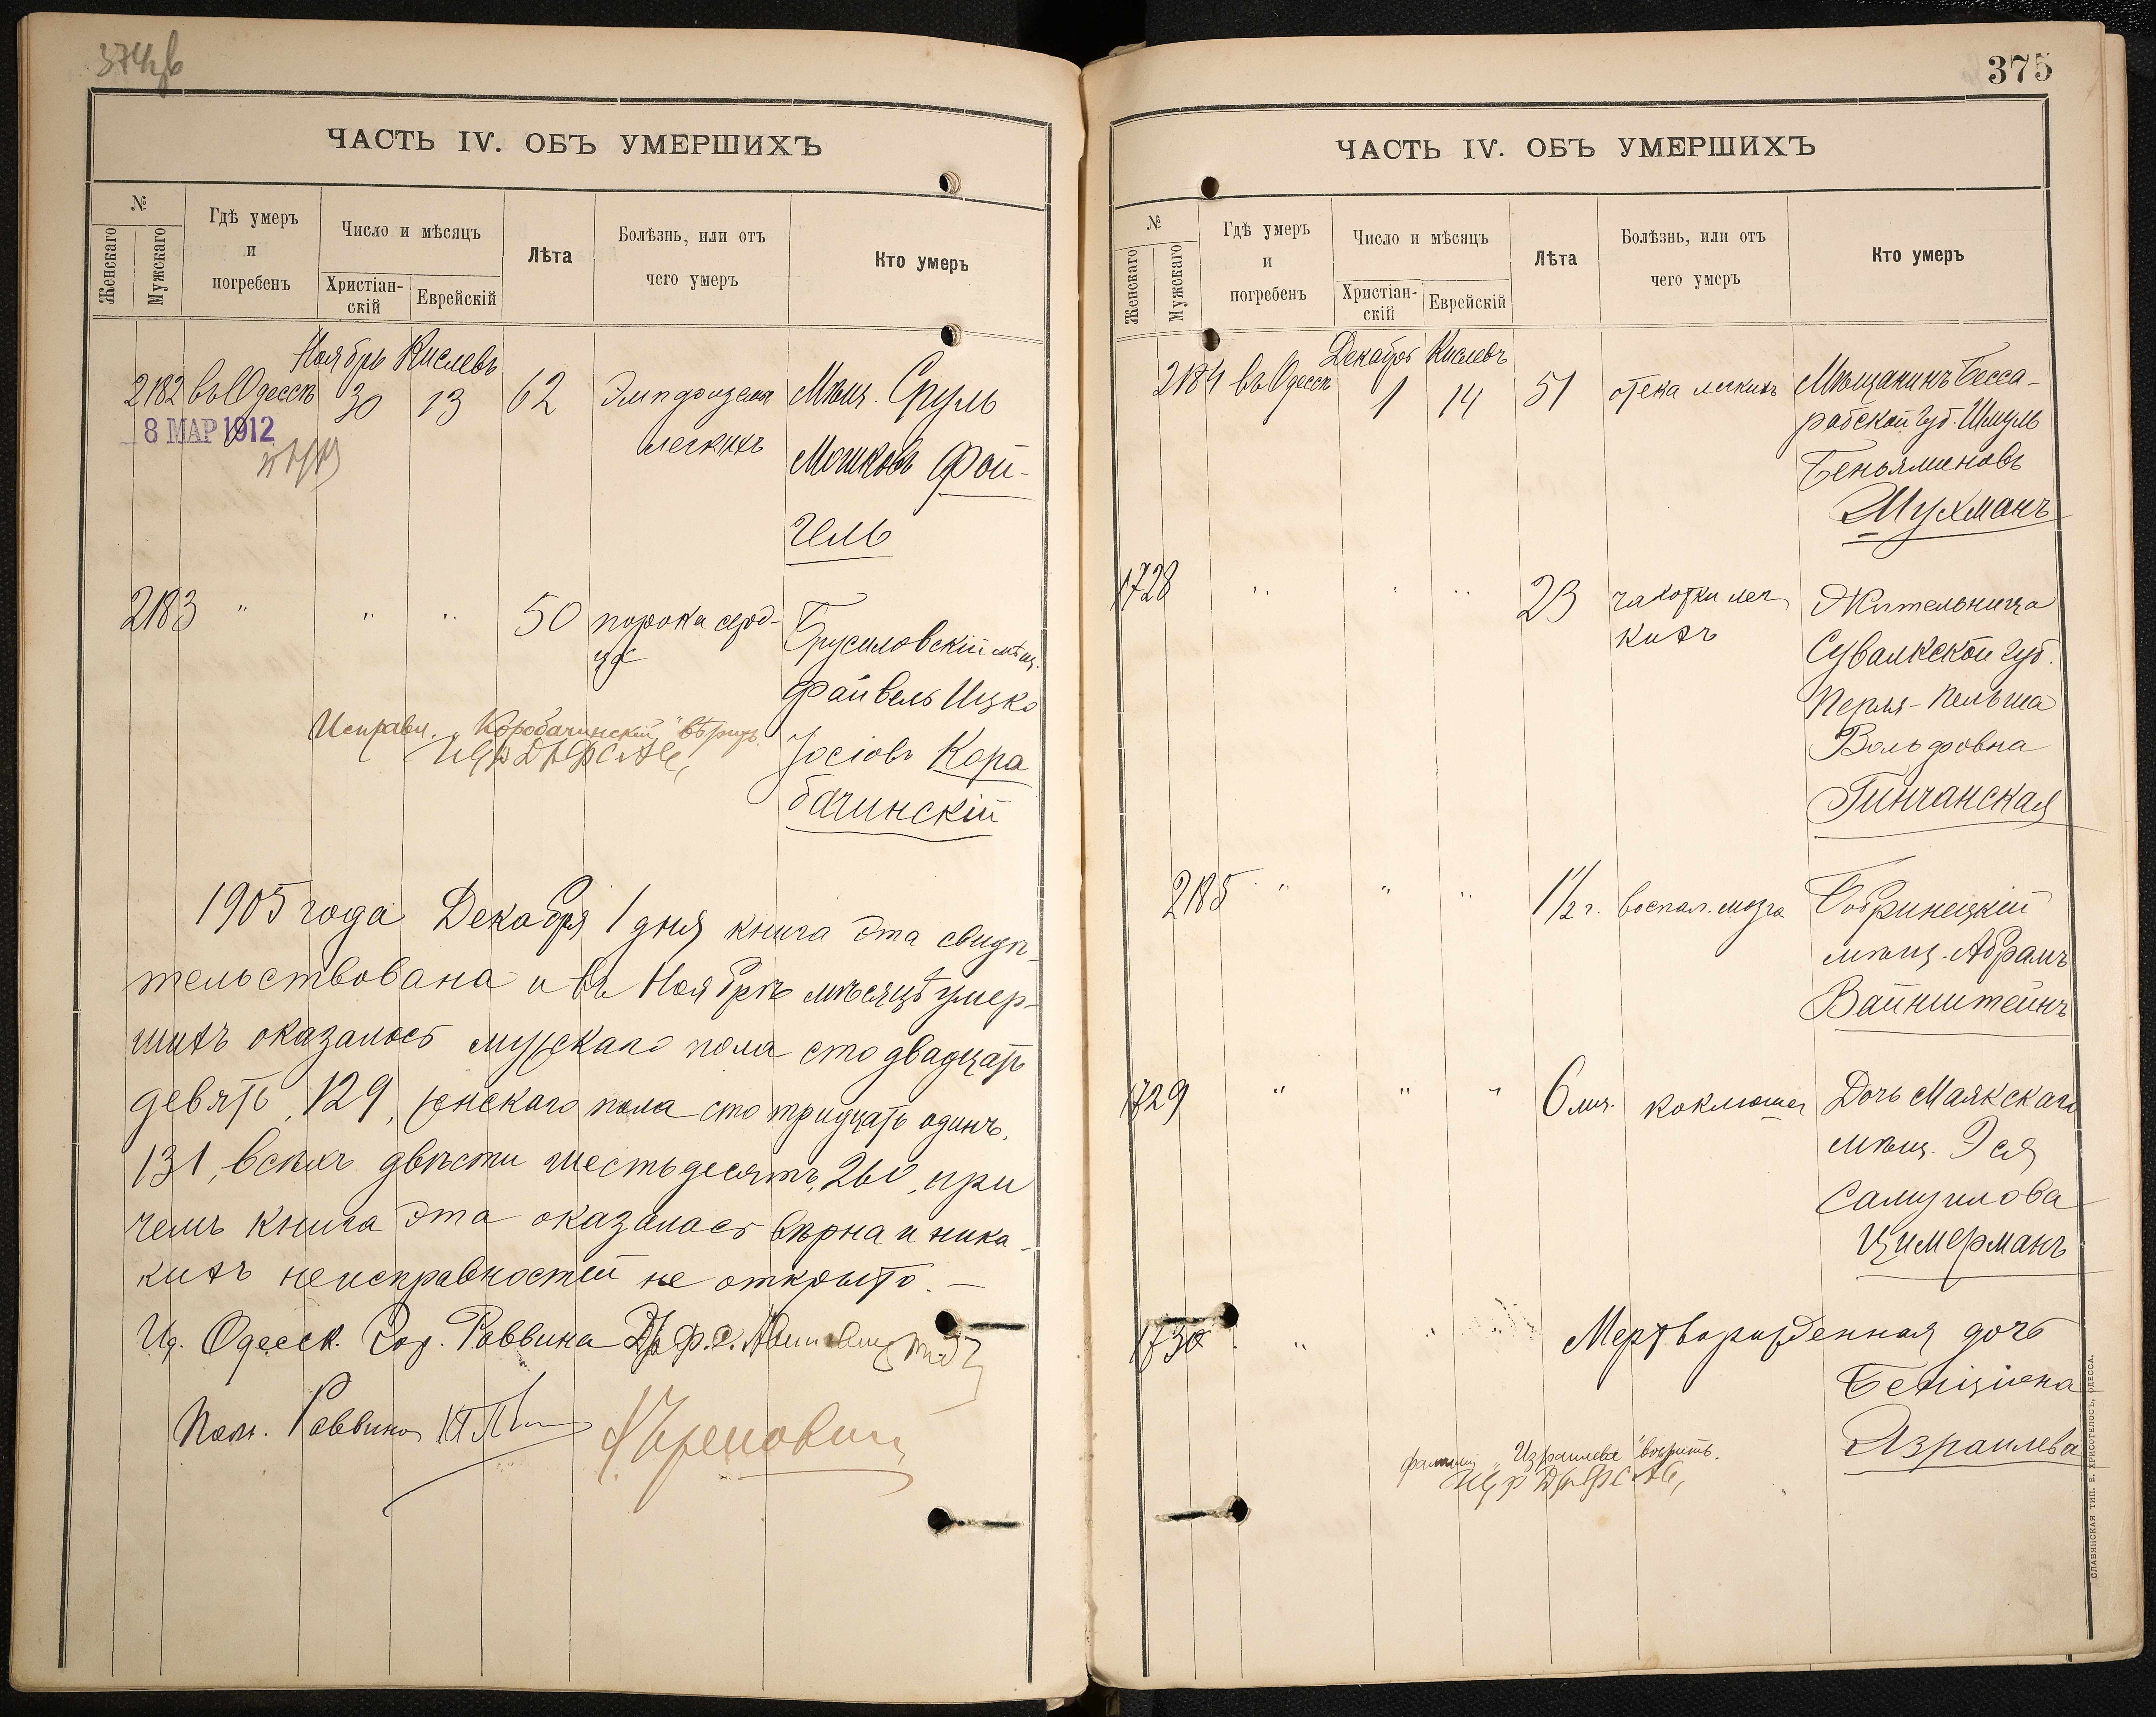 ЧАСТЬ IV. ОБЪ УМЕРШИХЪ
№
Женскаго
Мужскаго
Гдѣ умеръ
и
погребенъ
Число и мѣсяцъ
Христіан-
скій
Еврейскій
Лѣта
Болѣзнь, или отъ
чего умеръ
Кто умеръ
Ноябрь Кислевъ
2182 въ Одессѣ 30 13 62 Эмпфизема легкихъ
8 МАР 1912
Мѣщ. Сруль
Мошковъ Фай-
гель
2183 " " " 50 порока серд-
ца
Брусиловскій мѣщ.
Файвель Ицко
Іосіовъ Кора
бачинскій
Исправл. „Коробачинскій" вѣрить.
1905 года Декабря 1 дня книга эта свидѣ-
тельствована и въ Ноябрѣ мѣсяцѣ умер-
шихъ оказалось мужскаго пола сто двадцать
девять, 129, женскаго пола сто тридцать одинъ,
131, всѣхъ двѣсти шестьдесятъ, 260, при
чемъ книга эта оказалась вѣрна и ника-
кихъ неисправностей не открыто. —
Ид. Одесск. Гор. Раввина Др. Ф. С.
Пом. Раввина
375
ЧАСТЬ IV. ОБЪ УМЕРШИХЪ
№
Женскаго
Мужскаго
Гдѣ умеръ
и
погребенъ
Число и мѣсяцъ
Христіан-
скій
Еврейскій
Лѣта
Болѣзнь, или отъ
чего умеръ
Кто умеръ
Декабрь Кислевъ
2184 въ Одессѣ 1 14 51 отека легкихъ
Мѣщанинъ Бесса-
рабской губ. Шмуль
Беньяминовъ
Шухманъ
1728 " " " 23 чахотки лег
кихъ
Жительница
Сувалкской губ.
Перля-Пельша
Вольфовна
Гинчанская
2185 " " " 1 1/2 г. воспал. мозга
Бобринецкій
мѣщ. Абрамъ
Вайнштейнъ
1729 " " " 6 мц. коклюша
Дочь Маякскаго
мѣщ. Эся
Самуилова
Цимерманъ
1730 " " Мертворожденная дочь
Бенціона
Азраилева
фамиліи „Израилева" вѣрить.
СЛАВЯНСКАЯ ТИП. Е. ХРИСОГЕЛОСЪ, ОДЕССА.